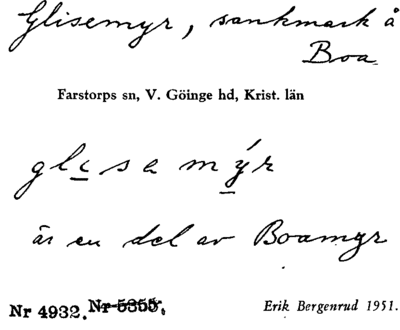 Glisemyr, sankmark å
Boa
Farstorps sn, V. Göinge hd, Krist. län
gli̱sa mý̱r
är en del av Boamyr
Nr 4932. N̶r̶ ̶5̶3̶5̶5̶.
Erik Bergenrud 1951.